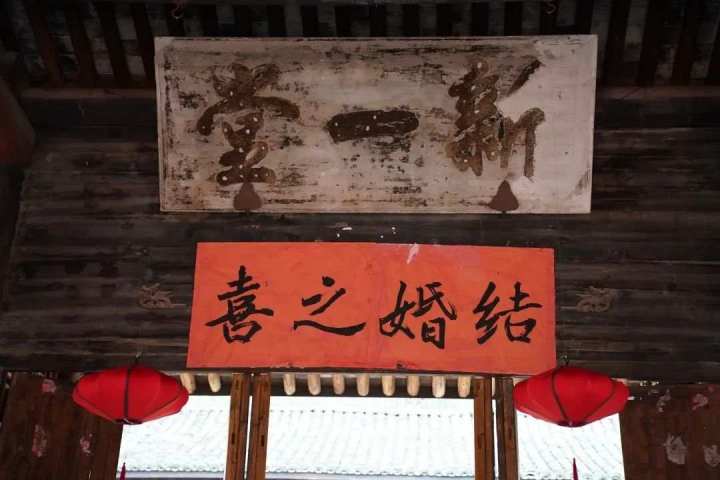 新一堂
结婚之喜